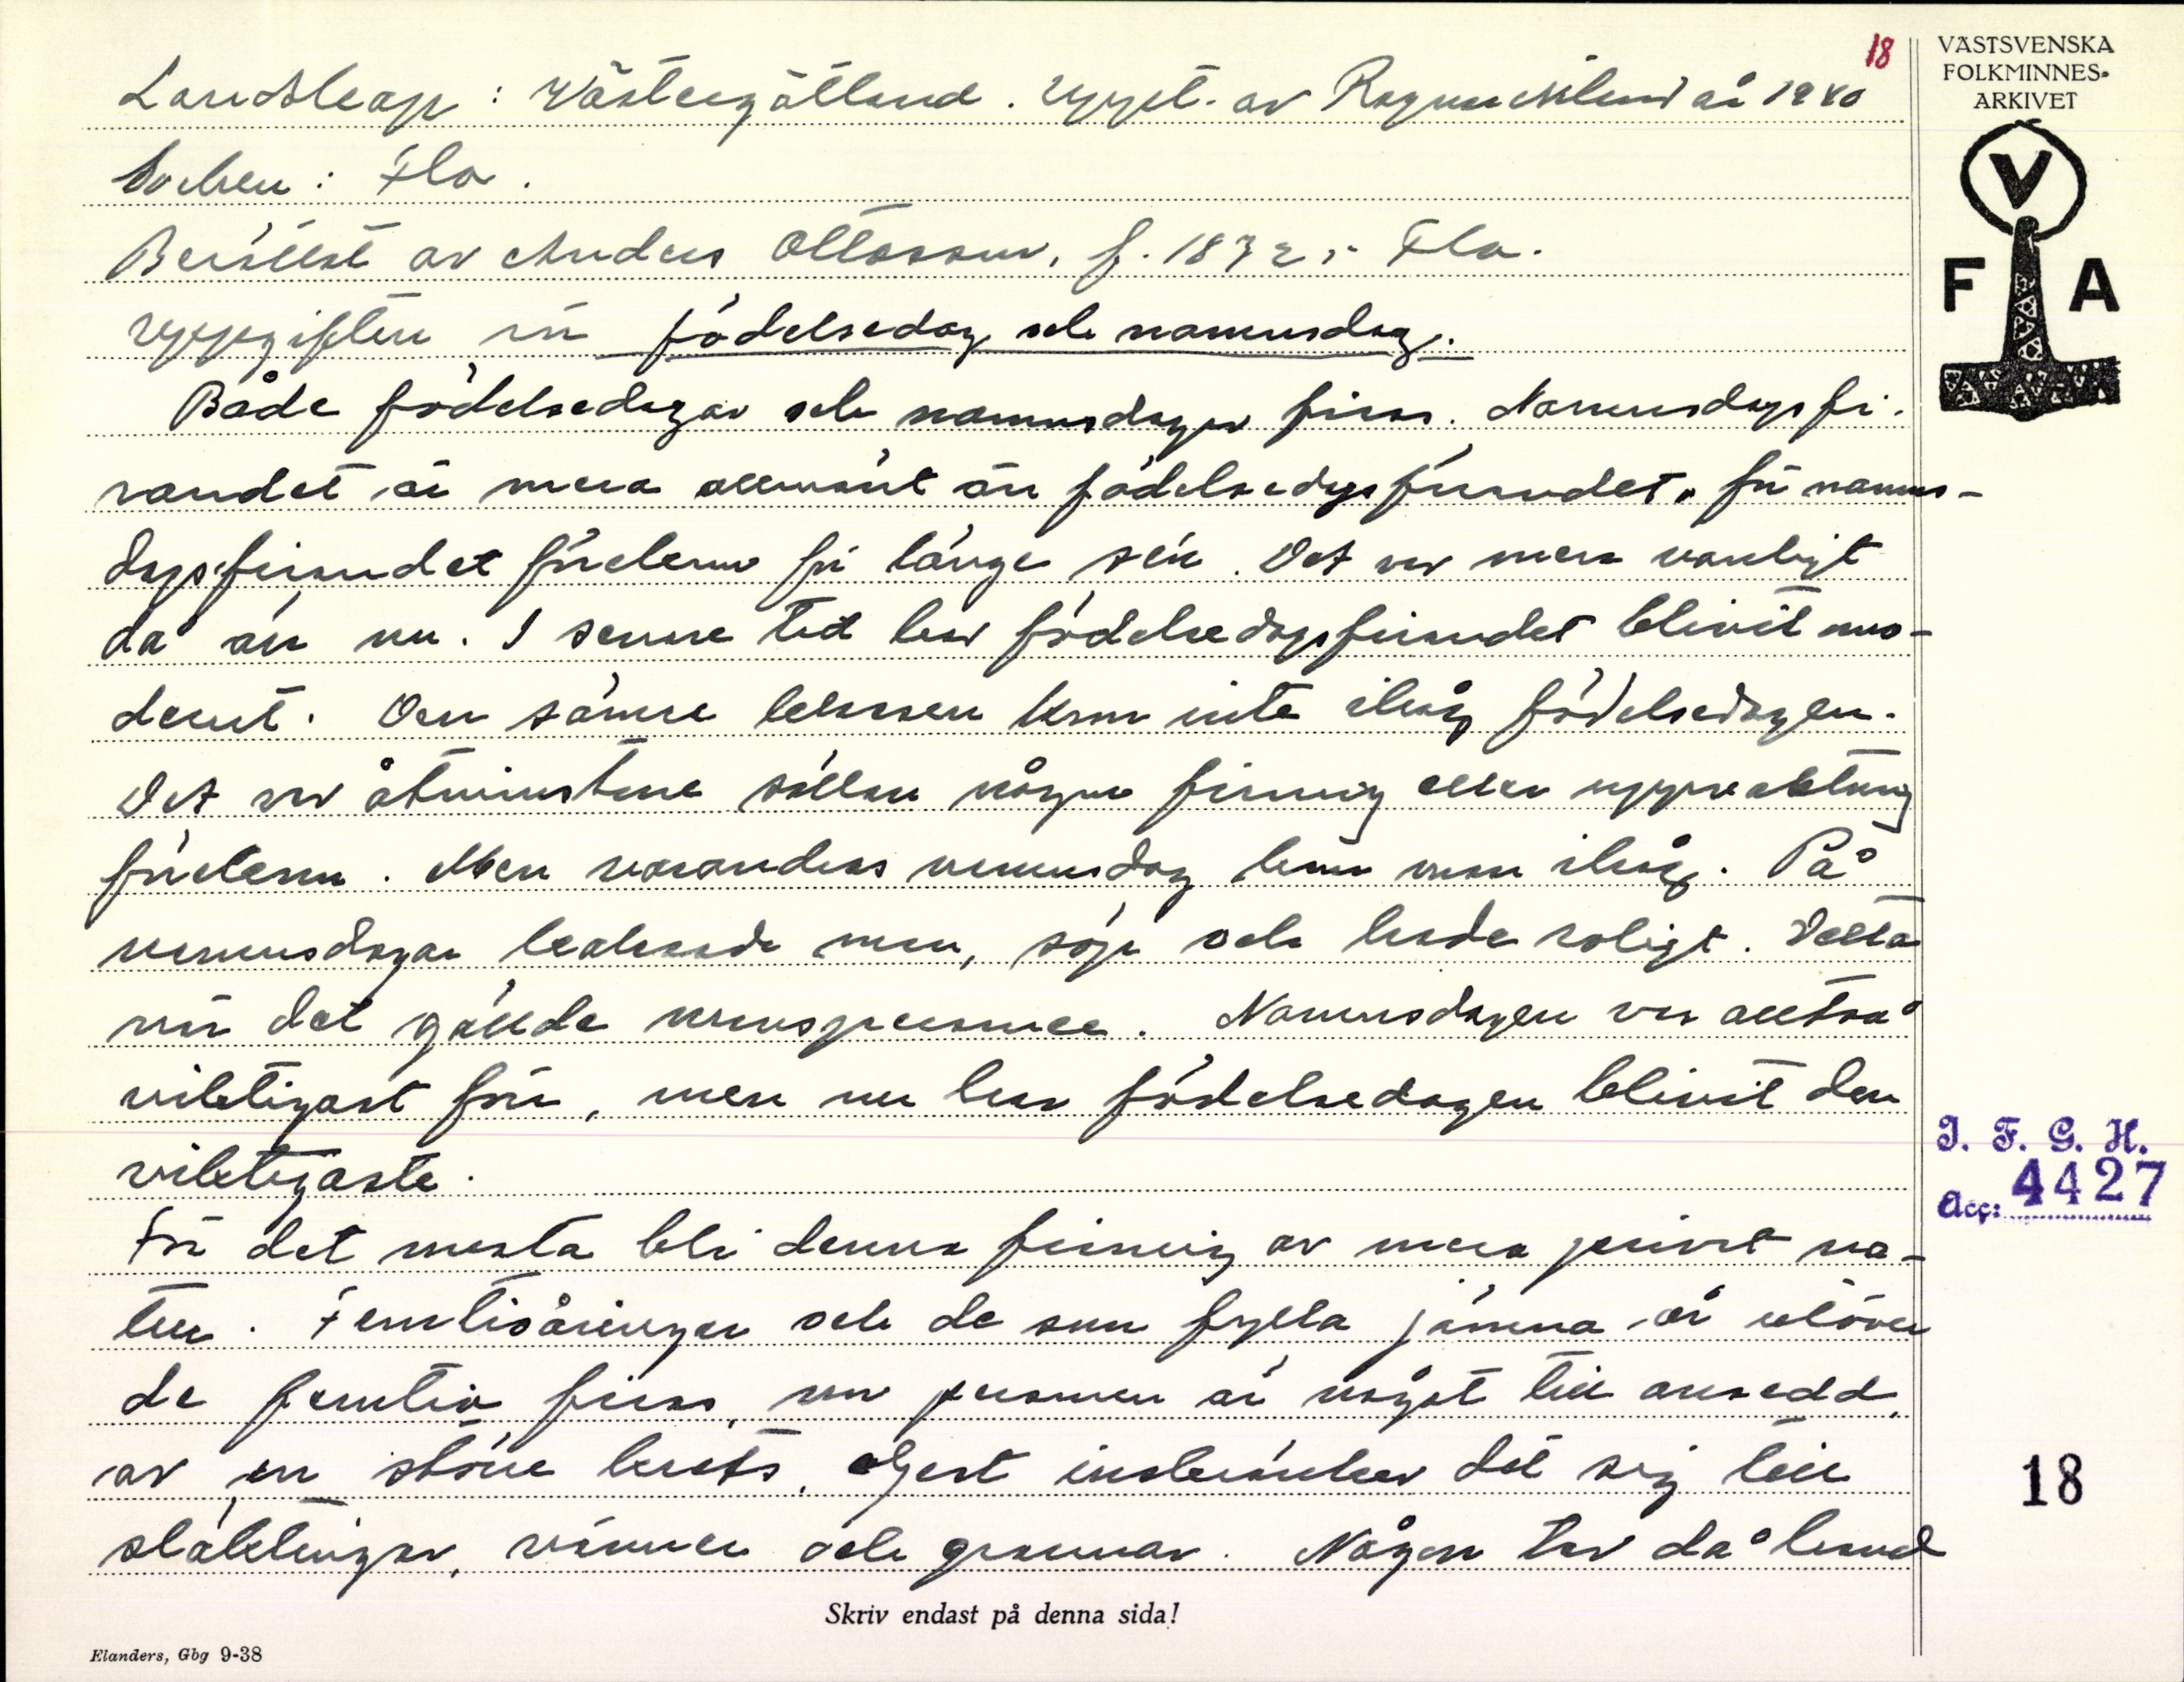 18
VÄSTSVENSKA
FOLKMINNES-
ARKIVET
V
F A
Landskap: Västergötland. Uppt. av Ragnar Nilsson år 1940
Socken: Flo.
Berättat av Anders Ottosson, f. 1872 i Flo.
Uppgiften rör födelsedag och namnsdag.
Både födelsedagar och namnsdagar firas. Namnsdagsfi-
randet är mera allmänt än födelsedagsfirandet. för namns-
dagsfirandet förekom för länge sen. Det var mera vanligt
då än nu. I senare tid har födelsedagsfirandet blivit mo-
dernt. Den sämre klassen kom inte ihåg födelsedagen.
Det var åtminstone sällan någon firning eller uppvaktning
förekom. Men varandras namnsdag kom man ihåg. På
namnsdagar kalasade man, söp och hade roligt. Detta
när det gällde manspersoner. Namnsdagen var alltså
viktigast förr, men nu har födelsedagen blivit den
viktigaste.
För det mesta bli denna firning av mera privat na-
tur. Femtioåringar och de som fylla jämna år utöver
de femtio firas, om personen är något till ansedd,
av en större krets. Mest inskränker det sig till
släktingar, vänner och grannar. Någon tar då hand
I. F. G. H.
Acc: 4427
18
Skriv endast på denna sida!
Elanders, Gbg 9-38